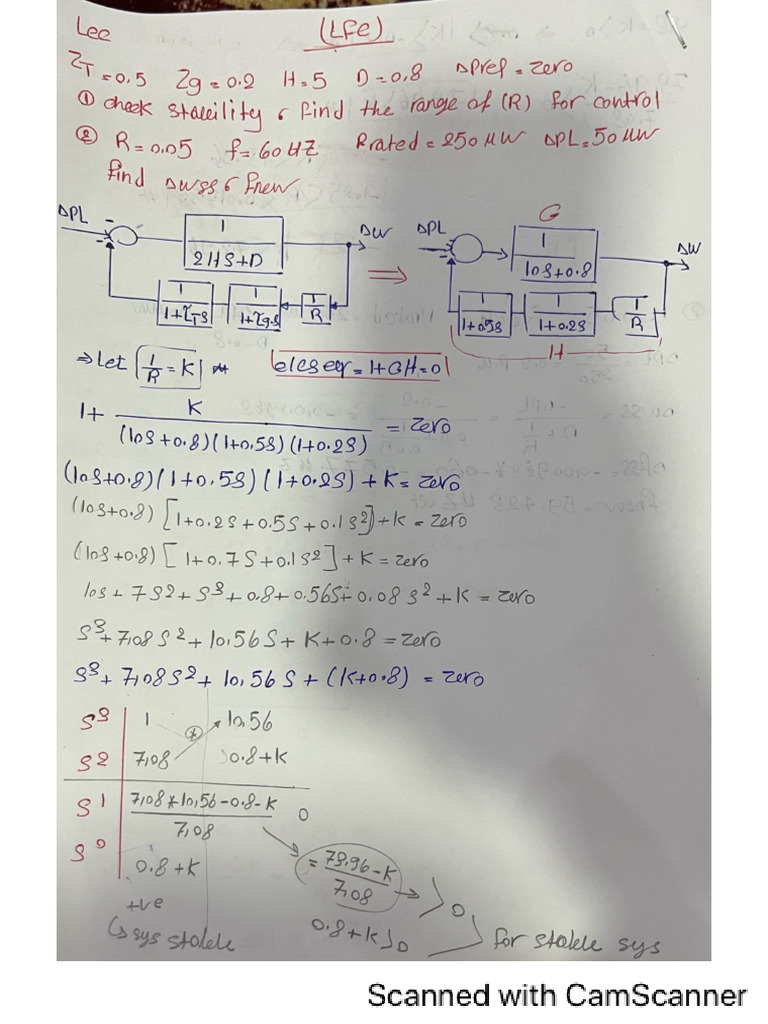 Lec (LFC)
ZT=0.5 Zg=0.2 H=5 D=0.8 ΔPref=Zero
① check stability & find the range of (R) for control
② R=0.05 f=60HZ Prated=250 MW ΔPL=50 MW
find Δwss & fnew
ΔPL - 1 ΔW ΔPL G 1 ΔW
2HS+D ⇒ 10S+0.8
1 1 1 1 1 1
1+τTS 1+τg.S R 1+0.5S 1+0.2S R
H
⇒ Let 1/R = K ch eq = 1+GH=0
1+ K/((10S+0.8)(1+0.5S)(1+0.2S)) = Zero
(10S+0.8)(1+0.5S)(1+0.2S)+K=Zero
(10S+0.8)[1+0.2S+0.5S+0.1S²]+K=Zero
(10S+0.8)[1+0.7S+0.1S²]+K=Zero
10S+7S²+S³+0.8+0.56S+0.08S²+K=Zero
S³+7,08S²+10,56S+K+0.8=Zero
S³+7,08S²+10,56S+(K+0.8)=Zero
S³ 1 10,56
S² 7,08 0.8+K
S¹ 7,08*10,56-0.8-K 0
7,08
S⁰ 0.8+K = 73,96-K
7,08 > 0
+ve 0.8+K>0 for stable sys
↳ sys stable
Scanned with CamScanner